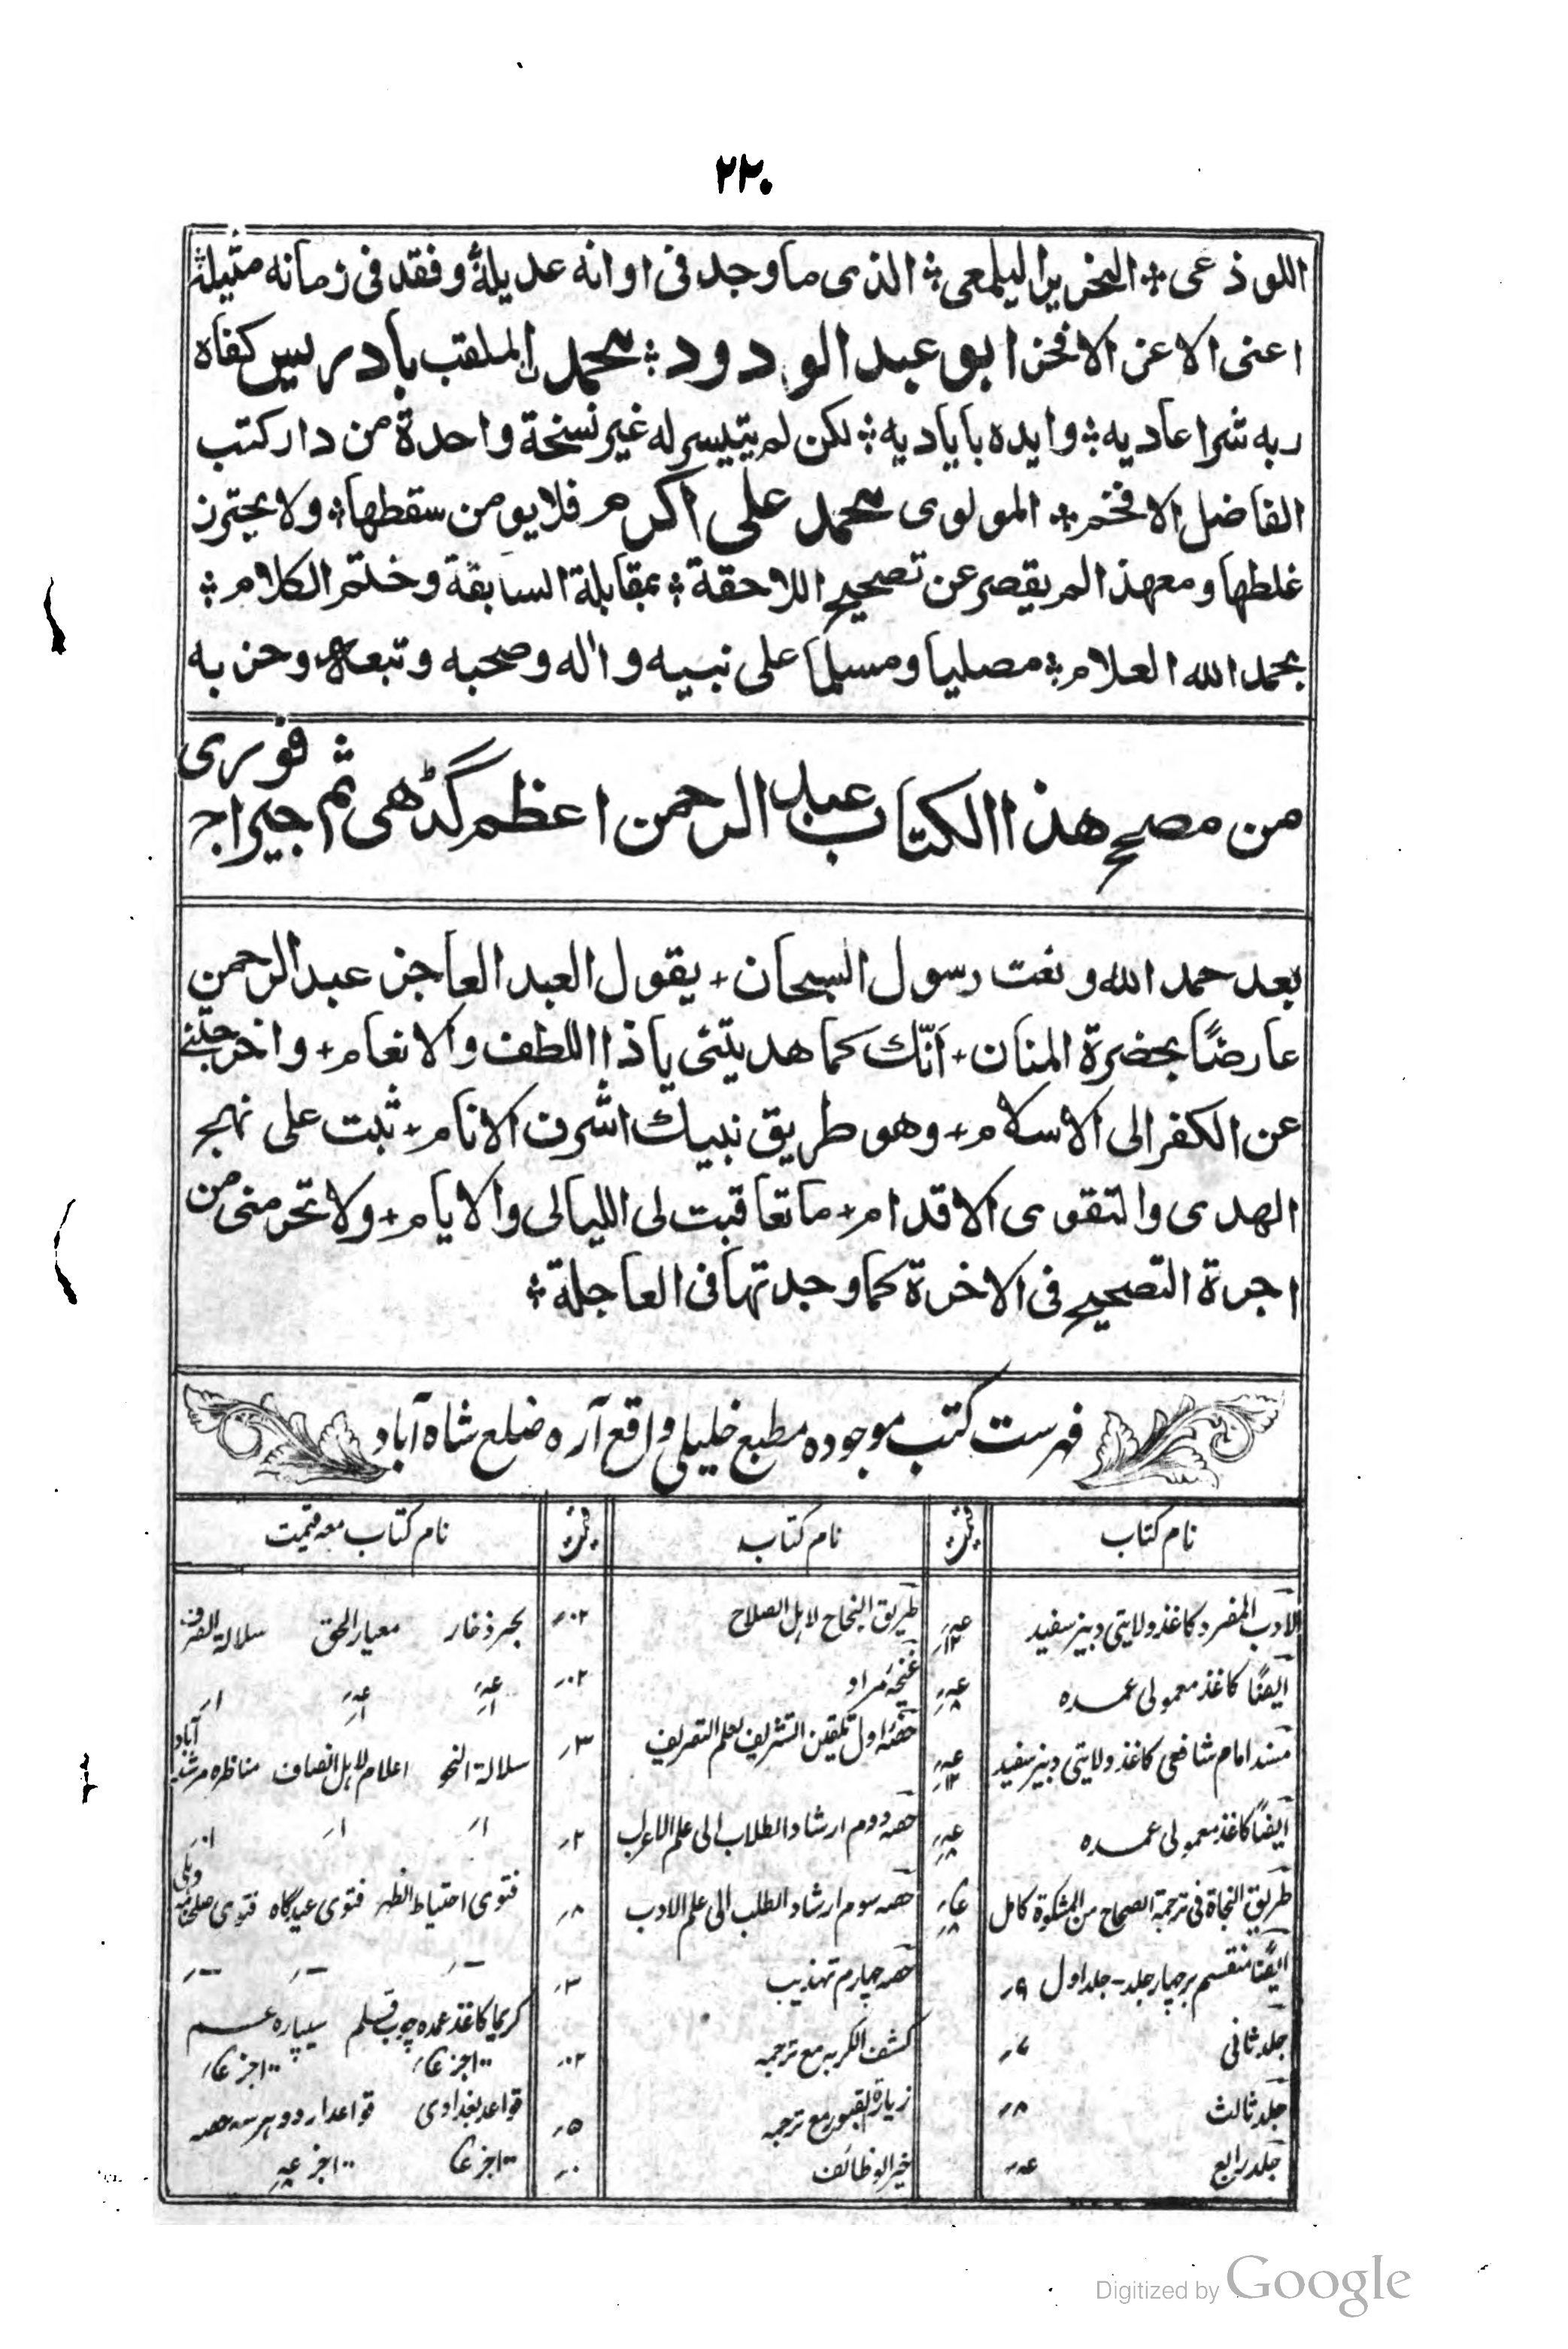 ۲۲۰
اللوذعی ؞ النحریر الیلمعی ؞ الذی ما وجد فی اوانه عدیله ؞ وفقد فی زمانه مثیله ؞
اعنی الاعز الافخر ابو عبد الودود ؞ محمد الملقب بادریس کفاه
ربه شر اعادیه ؞ وایده بایادیه ؞ لکن لم یتیسر له غیر نسخة واحدة من دار کتب
الفاضل الافخم ؞ المولوی محمد علی اکرم فلا یومن سقطها ؞ ولا یحترز
غلطها ومعهذا لم یقصر عن تصحیح اللاحقة ؞ بمقابلة السابقة وختم الکلام ؞
بحمد الله العلام ؞ مصلیا ومسلما علی نبیه واٰله وصحبه وتبعه وحزبه
من مصحح هذا الکتاب عبد الرحمن اعظم گڈھی ثم جیراجفوری
بعد حمد الله ونعت رسول السبحان + یقول العبد العاجز عبد الرحمن
عارضًا بحضرة المنان + انّک کما هدیتنی یا ذا اللطف والانعام + واخرجتنی
عن الکفر الی الاسلام + وهو طریق نبیک اشرف الانام + ثبت علی نهج
الهدی والتقوی الاقدام + ما تعاقبت لی اللیالی والایام + ولا تحرمنی من
اجرة التصحیح فی الاخرة کما وجدتها فی العاجلة ؞
فہرست کتب موجودہ مطبع خلیلی واقع آرہ ضلع شاہ آباد
نام کتاب
نام کتاب
نام کتاب معہ قیمت
الادب المفرد کاغذ ولایتی دبیز سفید
طریق النجاح لاہل الصلاح ۰۲ر
بحر ذخار معیار الحق سلالة الصرف
ایضًا کاغذ معمولی عمدہ
غنچۂ مراد ۰۲ر
مسند امام شافعی کاغذ ولایتی دبیز سفید
حصۂ اول تلقین التشریف لعلم التصریف ۳ر
سلالة النحو اعلام لاہل انصاف مناظرہ مرشد آباد
ایضًا کاغذ معمولی عمدہ
حصہ دوم ارشاد الطلاب الی علم الاعراب ۲ر
طریق النجاة فی ترجمة الصحاح من المشکوة کامل
حصہ سوم ارشاد الطلب الی علم الادب ۸ر
فتوی احتیاط الظہر فتوی عیدگاہ
ایضًا منقسم برچہار جلد - جلد اول ۹ر
حصہ چہارم تہذیب ۳ر
کریما کاغذ عمدہ چوب قلم سیپارہ عم
جلد ثانی ۷ر
کشف الکربہ مع ترجمہ ۰۲ر
۱۰۰جز ۱۰۰جز
جلد ثالث ۸ر
زیارة القبور مع ترجمہ ۵ر
قواعد بغدادی قواعد اردو ہر سہ حصہ
جلد رابع
خیر الوظائف
۱۰۰جز ۱۰۰جز
Digitized by Google